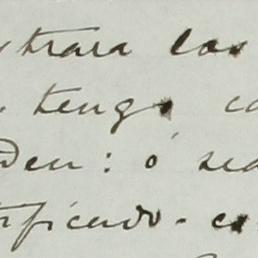 trara los
tengo co
den: ó sea
tificado - co